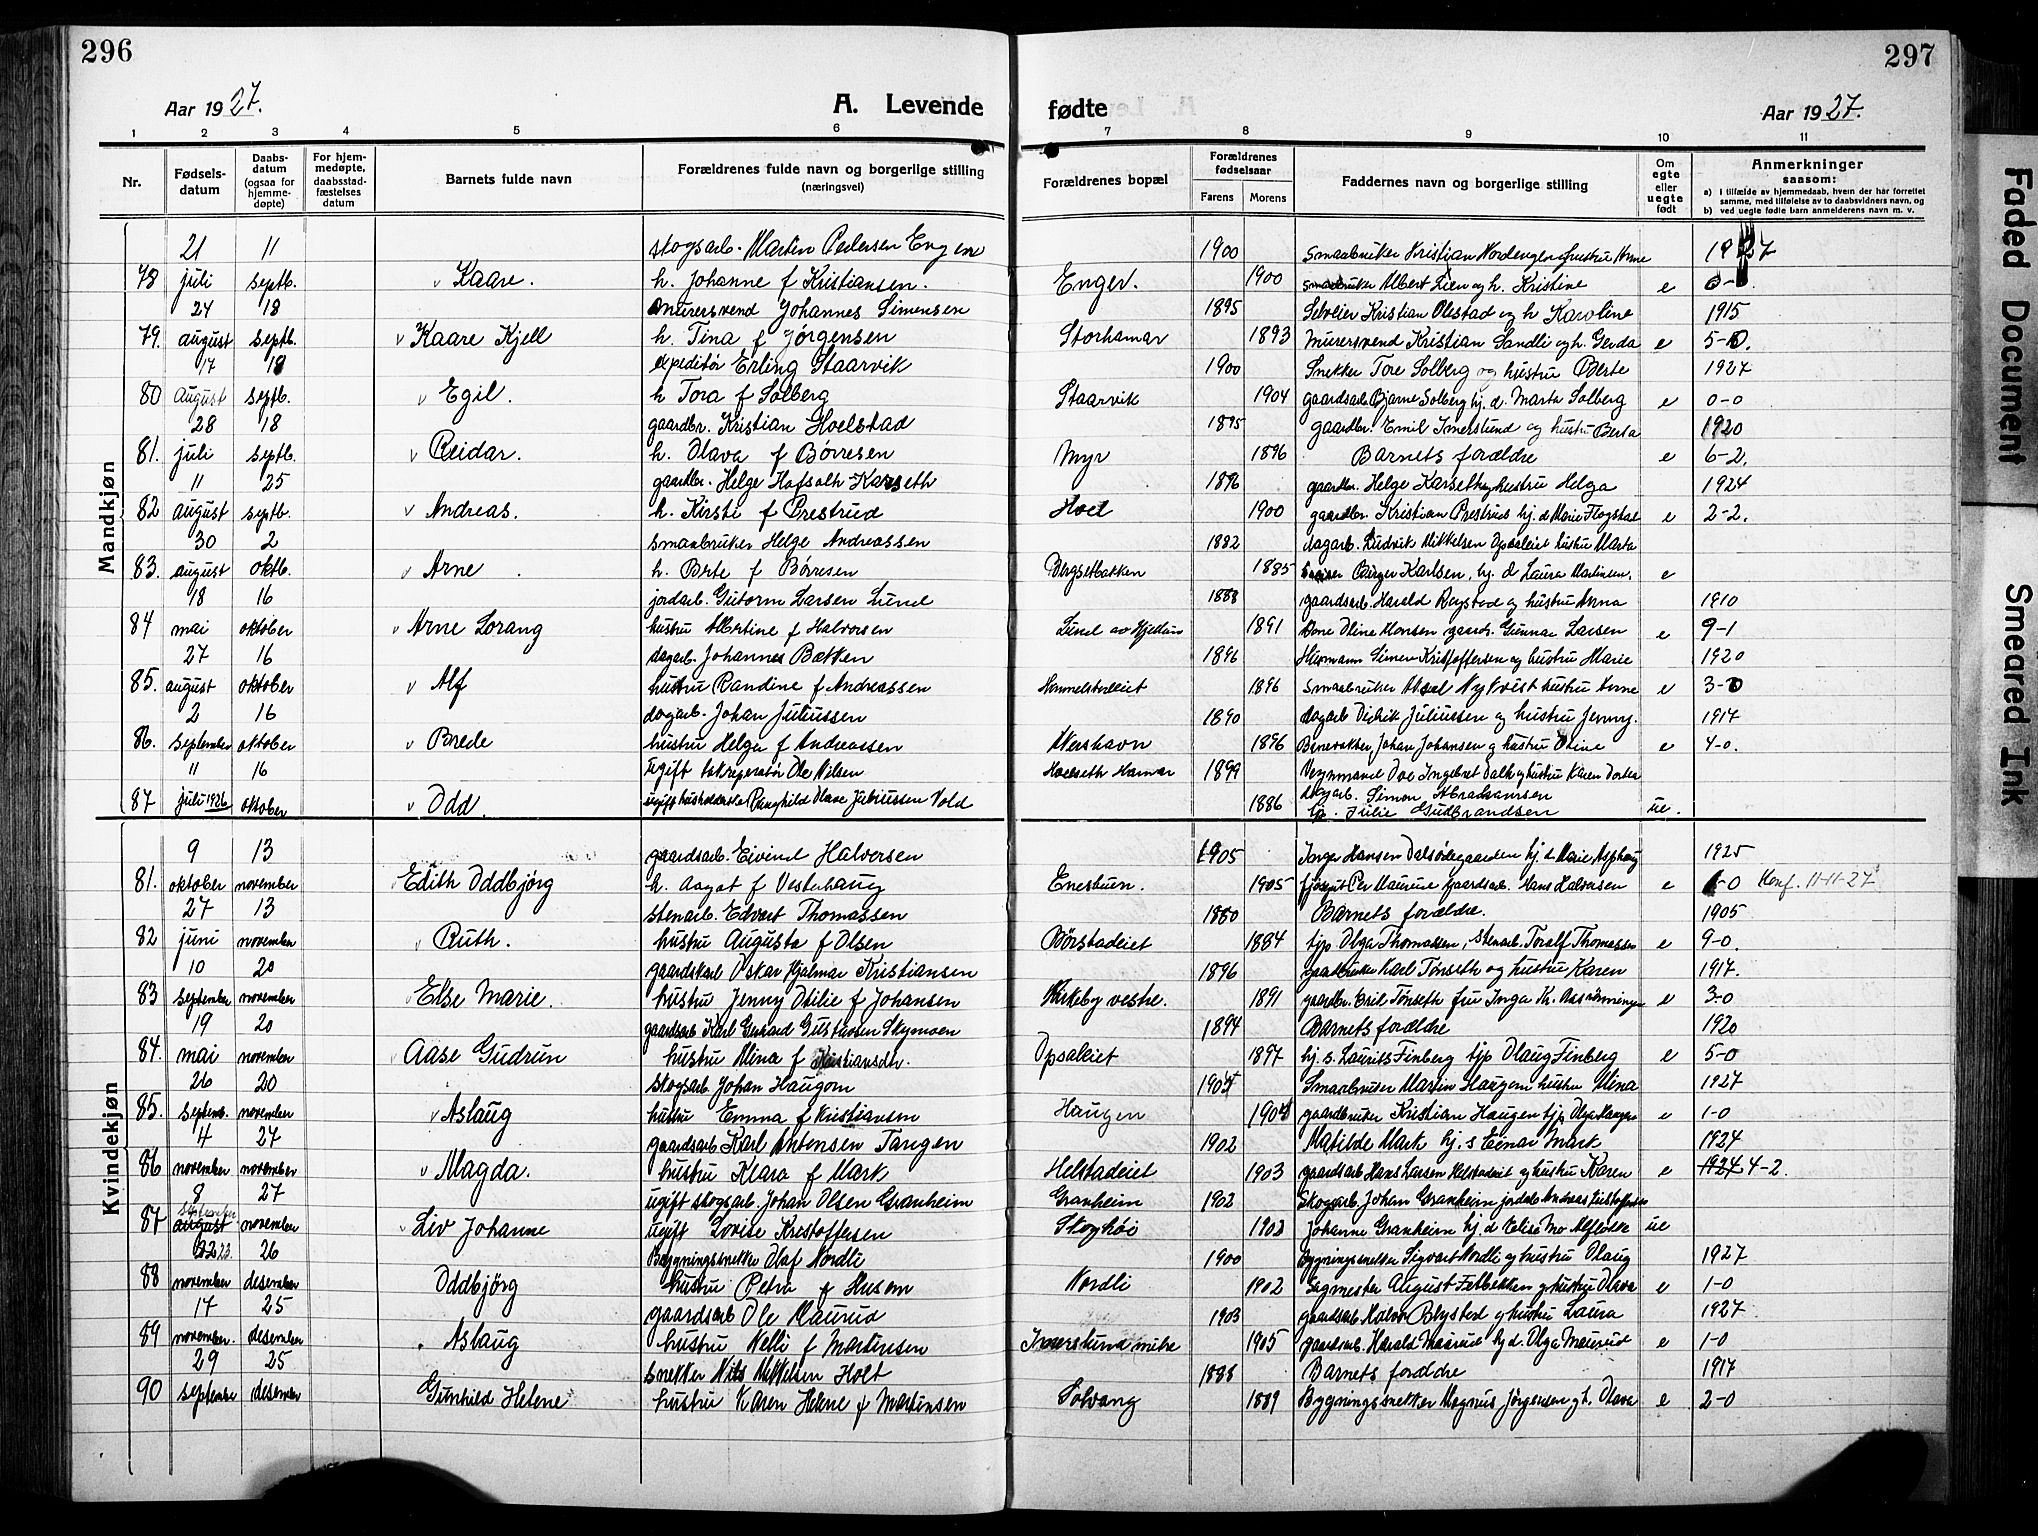 296
297
Aar 1927.
A. Levende
fødte
Aar 1927.
1 2 3 4 5 6 7 8 9 10 11
Nr.
Fødsels-
datum
Daabs-
datum
(ogsaa for
hjemme-
døpte)
For hjem-
medøpte,
daabsstad-
fæstelses
datum
Barnets fulde navn
Forældrenes fulde navn og borgerlige stilling
(næringsvei)
Forældrenes bopæl
Forældrenes
fødselsaar
Farens Morens
Faddernes navn og borgerlige stilling
Om
egte
eller
uegte
født
Anmerkninger
saasom:
a) I tilfælde av hjemmedaab, hvem der har forrettet
samme, med tilføielse av to daabsvidners navn, og
b) ved uegte fødte barn anmelderens navn m. v.
Mandkjøn
21 11 skogsarb. Martin Pedersen Engen 1900 smaabruker Kristian Nordengen hustru Anne 1927
78 juli septb. Kaare. h. Johanne f Kristiansen. Enger. 1900 smaabruker Albert Lien og h. Kristine e 0-
24 18 murersvend Johannes Simensen 1895 Selveier Kristian Olestad og h Karoline 1915
79. august septb. Kaare Kjell h. Tina f Jørgensen Storhamar 1893 murersvend Kristian Sandli og h. Gerda e 5-0.
17 18 expeditør Erling Staarvik 1900 Snekker Tore Solberg og hustru Berte 1927
80 august septb. Egil. h Tora f Solberg Staarvik 1904 gaardsarb Bjarne Solberg hj. d. Marta Solberg e 0-0
28 18 gaardbr. Kristian Hoelstad 1895 gaardbr. Emil Imerslund og hustru Berta 1920
81. juli septb. Reidar. h. Olava f Børresen Myr 1896 Barnets forældre e 6-2.
11 25 gaardbr. Helge Hafsalth Karseth 1896 gaardbr. Helge Karseth og hustru Helga 1924
82 august septb. Andreas. h. Kirsti f Prestrud Hoel 1900 gaardbr Kristian Prestrud hj. d Marie Flogstad e 2-2.
30 2 smaabruker Helge Andreassen 1882 dagarb. Ludvik Mikkelsen Opsaleiet hustru Marta
83. august oktb. Arne h. Berte f Børresen Bergsetbakken 1885 Birger Karlsen, hj. d Laura Martinsen. e
18 16 jordarb. Gutorm Larsen Lund 1888 gaardsarb. Harald Bergstad og hustru Anna 1910
84 mai oktober Arne Lorang hustru Albertine f Halvorsen Lund av Hjellum 1891 Done Oline Monsen gaardr. Gunnar Larsen e 9-1
27 16 dagarb. Johannes Bækken 1896 Husmann Simen Kristoffersen og hustru Marie 1920
85. august oktober Alf hustru Randine f Andreassen Hommelstadeiet 1896 Smaabruker Aksel Nykvist hustru Anne e 3-0
2 16 dagarb. Johan Juliussen 1890 dagarb Didrik Juliussen og hustru Jenny. 1917
86. september oktober Brede hustru Helga f Andreassen Akershavn 1896 Banevokter Johan Johansen og hustru Oline e 4-0.
11 16 Ugift Ole Nilsen Hoelseth Hamar 1899 Veymand Ole Ingebret Dalh og hustru Karen Dortea
87 juli 1926 oktober Odd. ugift husholderske Ragnhild Olava Juliussen Vold 1886 dagarb. Simon Abrahamsen
hj. Julie Gudbrandsen ue.
Kvindekjøn
9 13 gaardsarb. Eivind Halversen 1905 Inga Hansen Dalsødegaarden hj. d Marie Asphaug 1925
81. oktober november Edith Oddbjørg h. Aagot f Vesterhaug Enestuen. 1905 Per Maurud gaardsarb. Hans Halversen e 1-0 Konf. 11-11-27
27 13 stenarb. Edvart Thomassen 1880 Barnets forældre. 1905
82 juni november Ruth. hustru Augusta f Olsen Børstadeiet 1884 tjp Olga Thomassen, stenarb. Toralf Thomassen e 9-0.
10 20 gaardskarl Oskar Hjalmar Kristiansen 1896 gaardbruker Karl Tønseth og hustru Karen 1917.
83 september november Else Marie. hustru Jenny Otilie f Johansen Kirkeby vestre. 1891 gaardbr. Emil Tønseth fru Inga Kr. e 3-0
19 20 gaardsarb Karl Gerhard Gustavsen Skymoen 1894 Barnets forældre 1920
84. mai november Aase Gudrun hustru Mina f Kristiansdtr. Opsaleiet 1897 hj. s. Laurits Finberg tjp Olaug Finberg e 5-0
26 20 skogsarb Johan Haugom 1904 Smaabruker Martin Haugom hustru Mina 1927
85. septemb. november Aslaug hustru Emma f Kristiansen Haugen 1904 gaardbruker Kristian Haugen tjp Olga Haugen e 1-0
4 27 gaardsarb. Karl Antonsen Tangen 1902 Matilde Mark hj. s Einar Mark 1924
86 november november Magda. hustru Klara f Mark Helstadeiet 1903 gaardsarb Hans Larsen Helstadeiet og hustru Karen e 1924. 4-2.
8 27 ugift skogsarb. Johan Olsen Granheim Granheim 1902 Skogsarb. Johan Granheim jordarb Andreas Kristoffersen
87 september august november Liv Johanne ugift Lovise Kristoffersen Skoghøi 1902 Johanne Granheim hj. d Elise Mo ue
22 23. 26 Bygningssnekker Olaf Nordli 1900 Bygningssnekker Sigvart Nordli og hustru Olaug 1927
88 november desember Oddbjørg hustru Petra f Husom Nordli 1902 Sagmester August Fætbekken og hustru Olava e 1-0
17 25 gaardsarb Ole Maurud 1903 gaardsarb Halvor Blystad og hustru Laura 1927
89 november. desember Aslaug hustru Nelli f Martinsen Imerslund nitre 1905 gaardsarb. Harald Maurud hj d. Olga Maurud e 1-0
29 25 snekker Nils Mikkelsen Holt 1888 Barnets forældre 1917
90 september desember Gunhild Helene hustru Karen Helene f Martinsen Solvang 1889 Bygningssnekker Magnus Jørgensen og h. Olava e 2-0
Faded Document
Smeared Ink